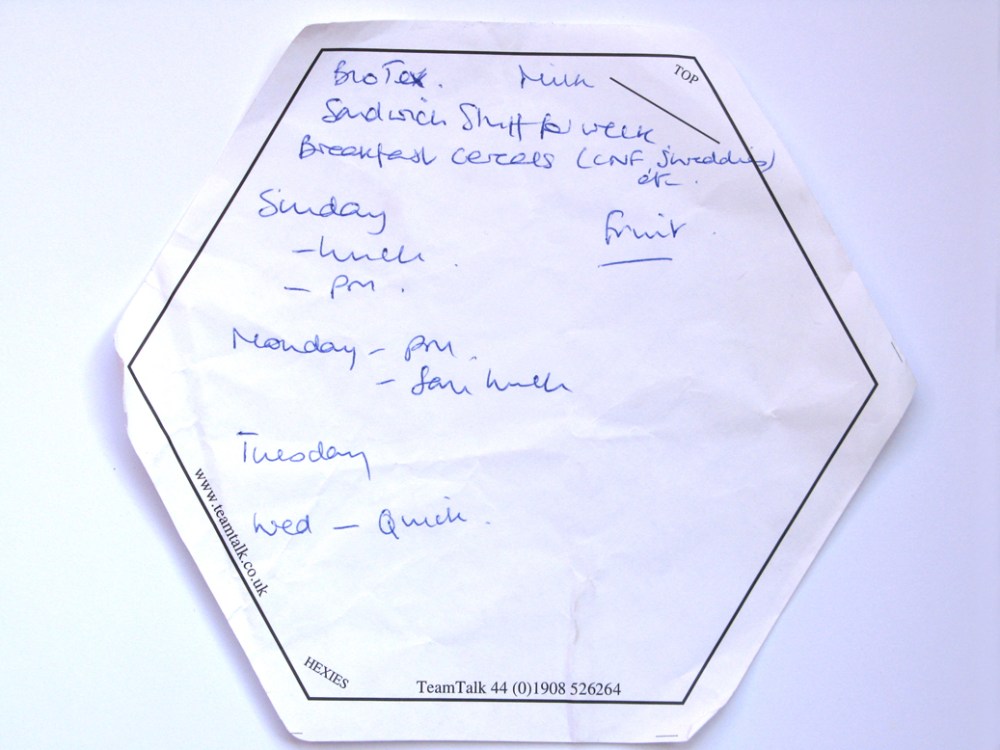 TOP
BioTex. Milk
Sandwich Stuff for week
Breakfast cereals (CNF, Shreddies)
etc.
Sunday
Fruit
- lunch.
- pm.
Monday - pm.
- lunch
Tuesday
Wed - Quick.
www.teamtalk.co.uk
HEXIES
TeamTalk 44 (0)1908 526264